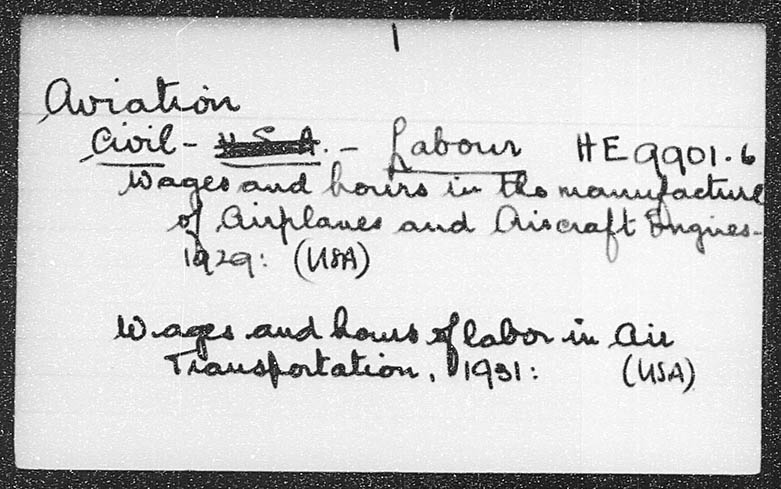 Aviation
Civil - U.S.A. - Labour HE 9901.6
Wages and hours in the manufacture
of Airplanes and Aircraft Engines -
1929: (USA)
Wages and hours of labor in Air
Transportation, 1931: (USA)